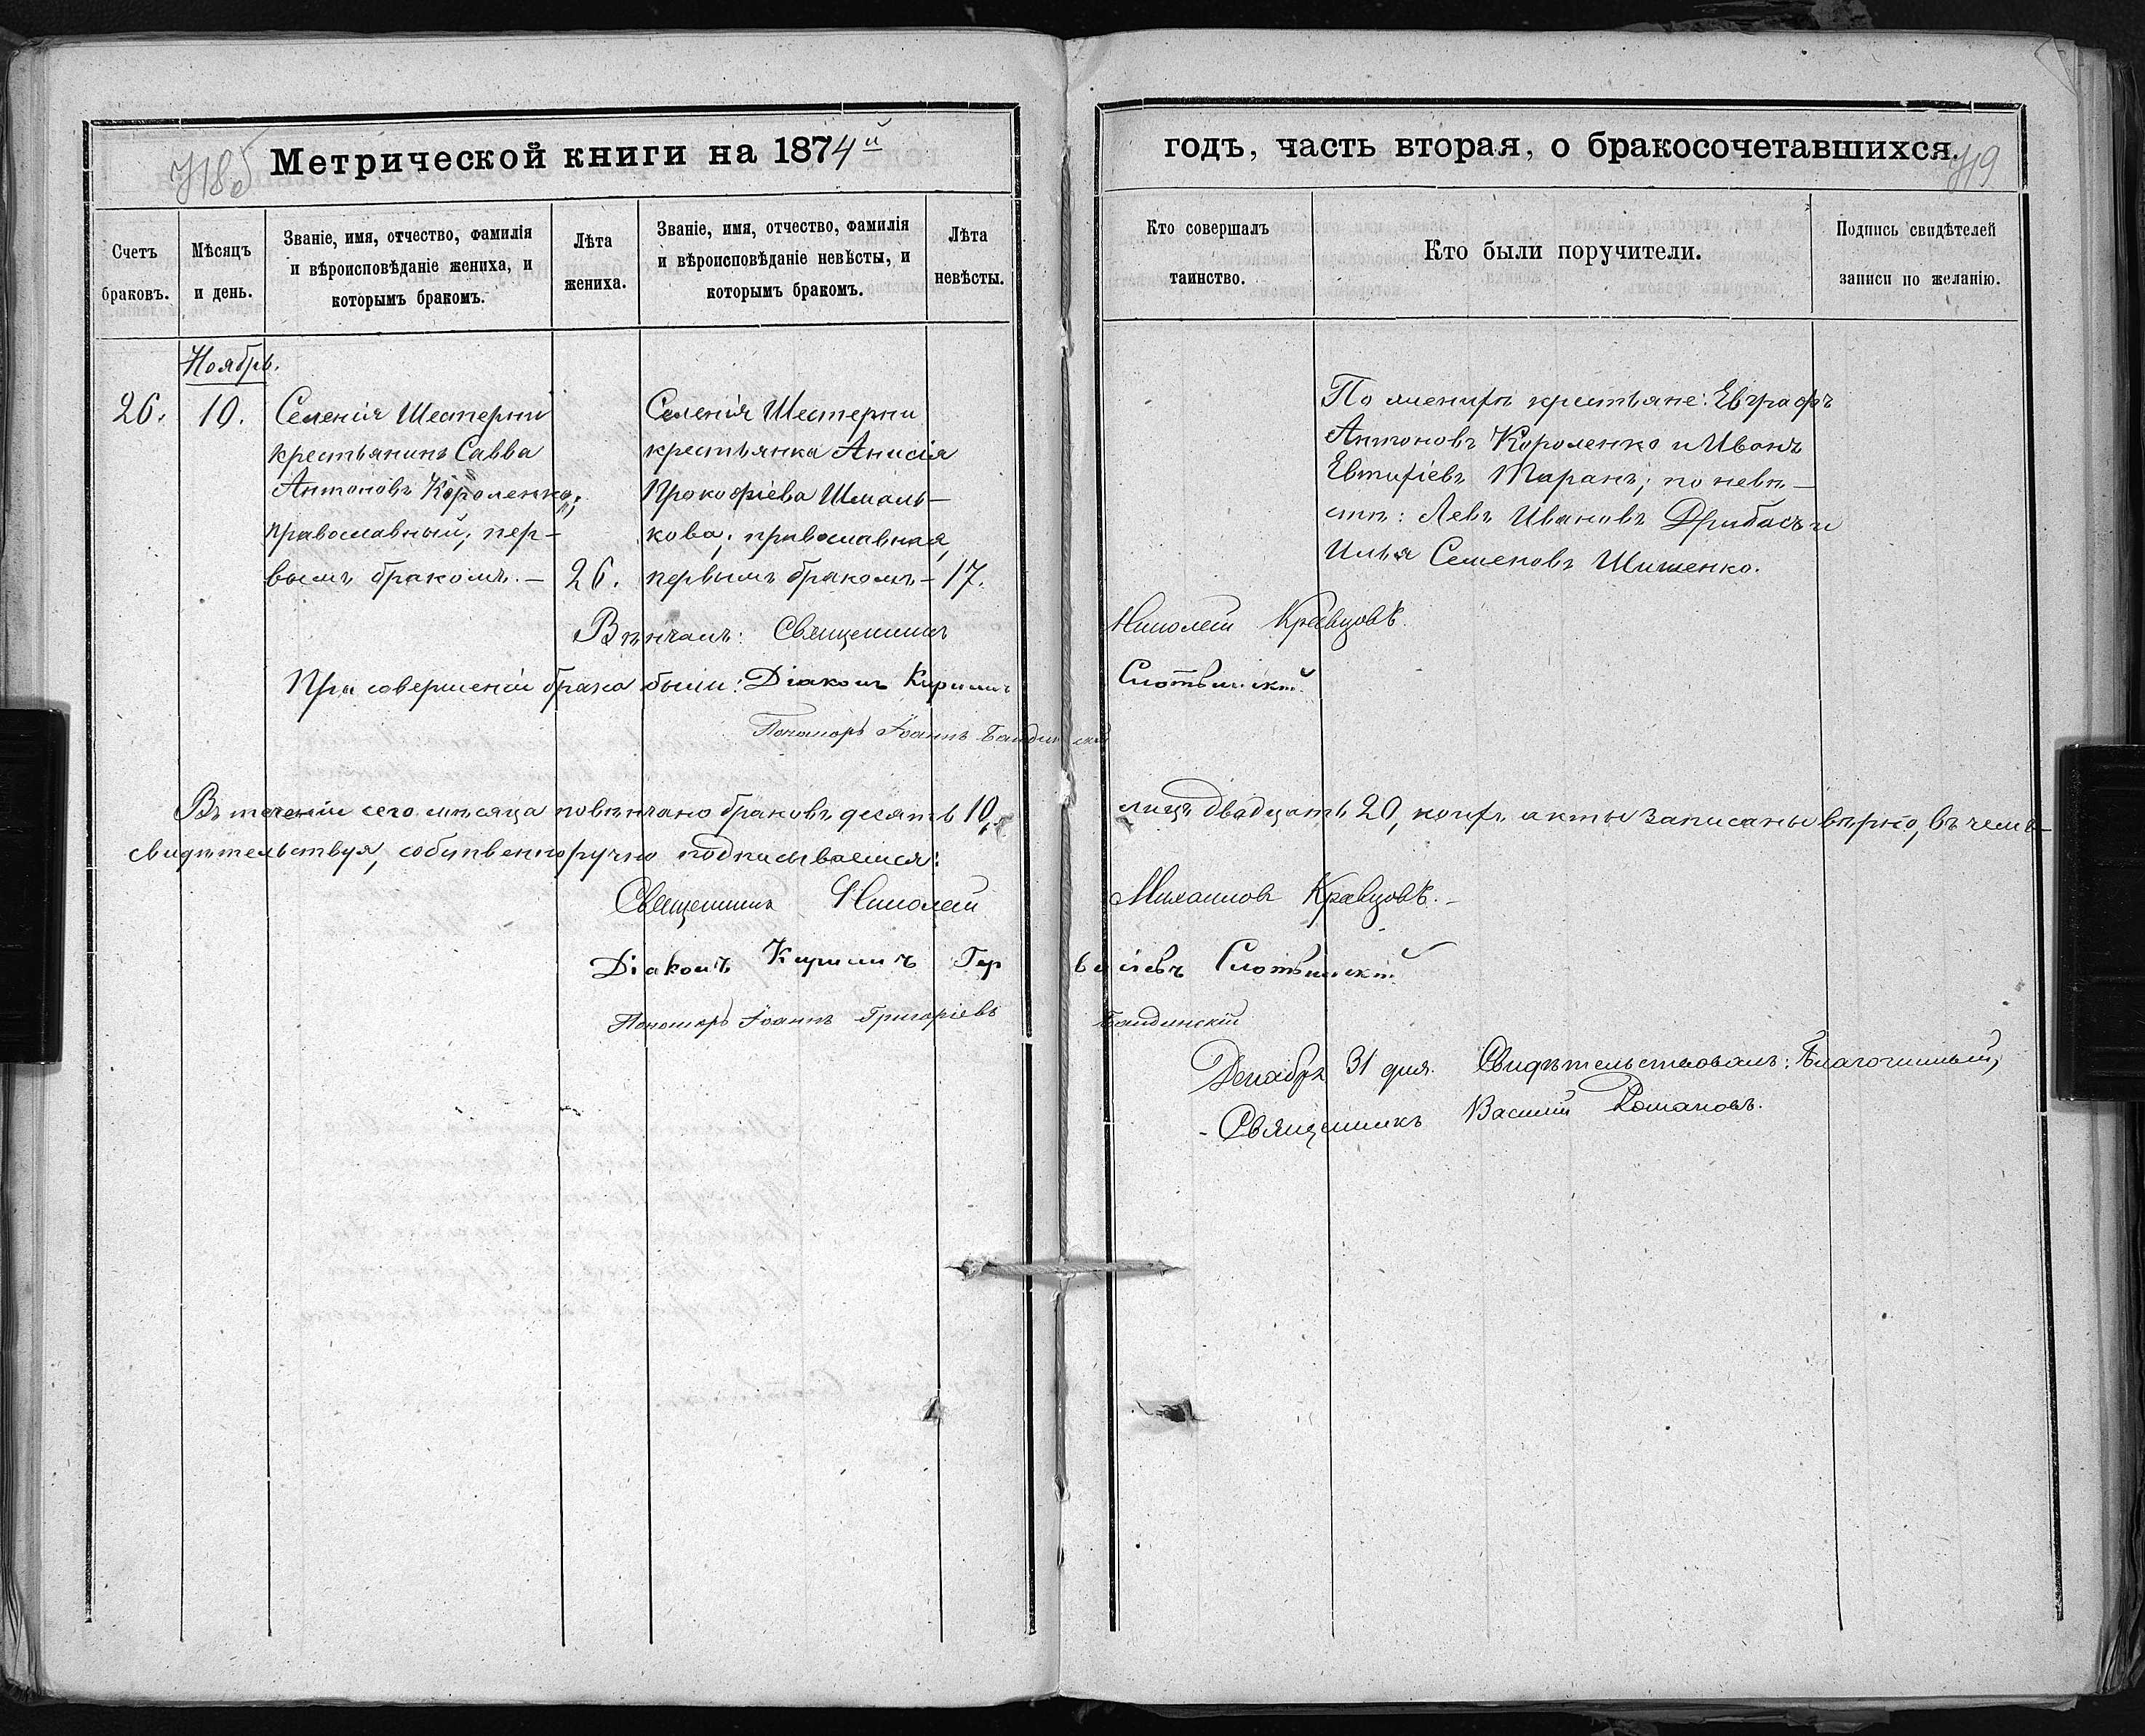 718об
Метрической книги на 1874й
Счетъ браковъ.
Мѣсяцъ и день.
Званіе, имя, отчество, фамилія и вѣроисповѣданіе жениха, и которымъ бракомъ.
Лѣта жениха.
Званіе, имя, отчество, фамилія и вѣроисповѣданіе невѣсты, и которымъ бракомъ.
Лѣта невѣсты.
Ноябрь.
26.
10.
Селенія Шестерни
крестьянинъ Савва
Антоновъ Короленко,
православный; пер-
вымъ бракомъ. —
26.
Селенія Шестерни
крестьянка Анисія
Прокофіева Шмаль-
кова; православная,
первымъ бракомъ —
17.
Вѣнчалъ: Священникъ
При совершеніи брака были: Діаконъ Кириллъ
Пономарь Іоаннъ
Въ теченіи сего мѣсяца повѣнчано браковъ десять 10,
свидѣтельствуя, собственноручно подписываемся:
Священникъ Николай
Діаконъ Кириллъ
Пономарь Іоаннъ Григоріевъ
годъ, часть вторая, о бракосочетавшихся.
719
Кто совершалъ таинство.
Кто были поручители.
Подпись свидѣтелей записи по желанію.
По женихѣ крестьяне: Евграфъ
Антоновъ Короленко и Иванъ
Евтихіевъ Таранъ; по невѣ-
стѣ: Левъ Ивановъ Дрибасъ и
Илья Семеновъ Шишенко.
Николай Кравцовъ.
лицъ двадцать 20, коихъ акты записаны вѣрно, въ чемъ
Михаиловъ Кравцовъ. —
Декабря 31 дня. Свидѣтельствовалъ: Благочинный,
Священникъ Василій Романовъ.